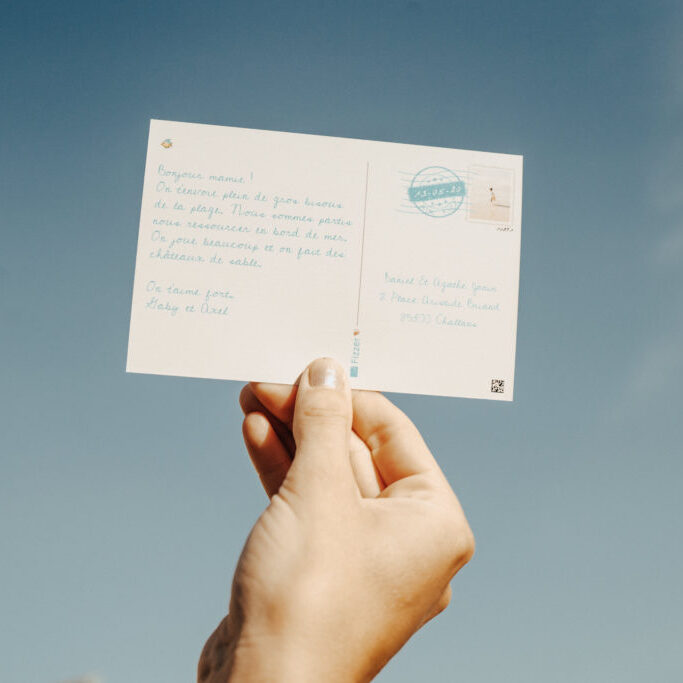 Bonjour mamie !
On t'envoie plein de gros bisous
de la plage. Nous sommes partis
nous ressourcer en bord de mer.
On joue beaucoup et on fait des
châteaux de sable.
On t'aime fort.
Gaby et Axel
13-05-20
Daniel Et Agathe
2 Place Aristide Briand
Fizzer